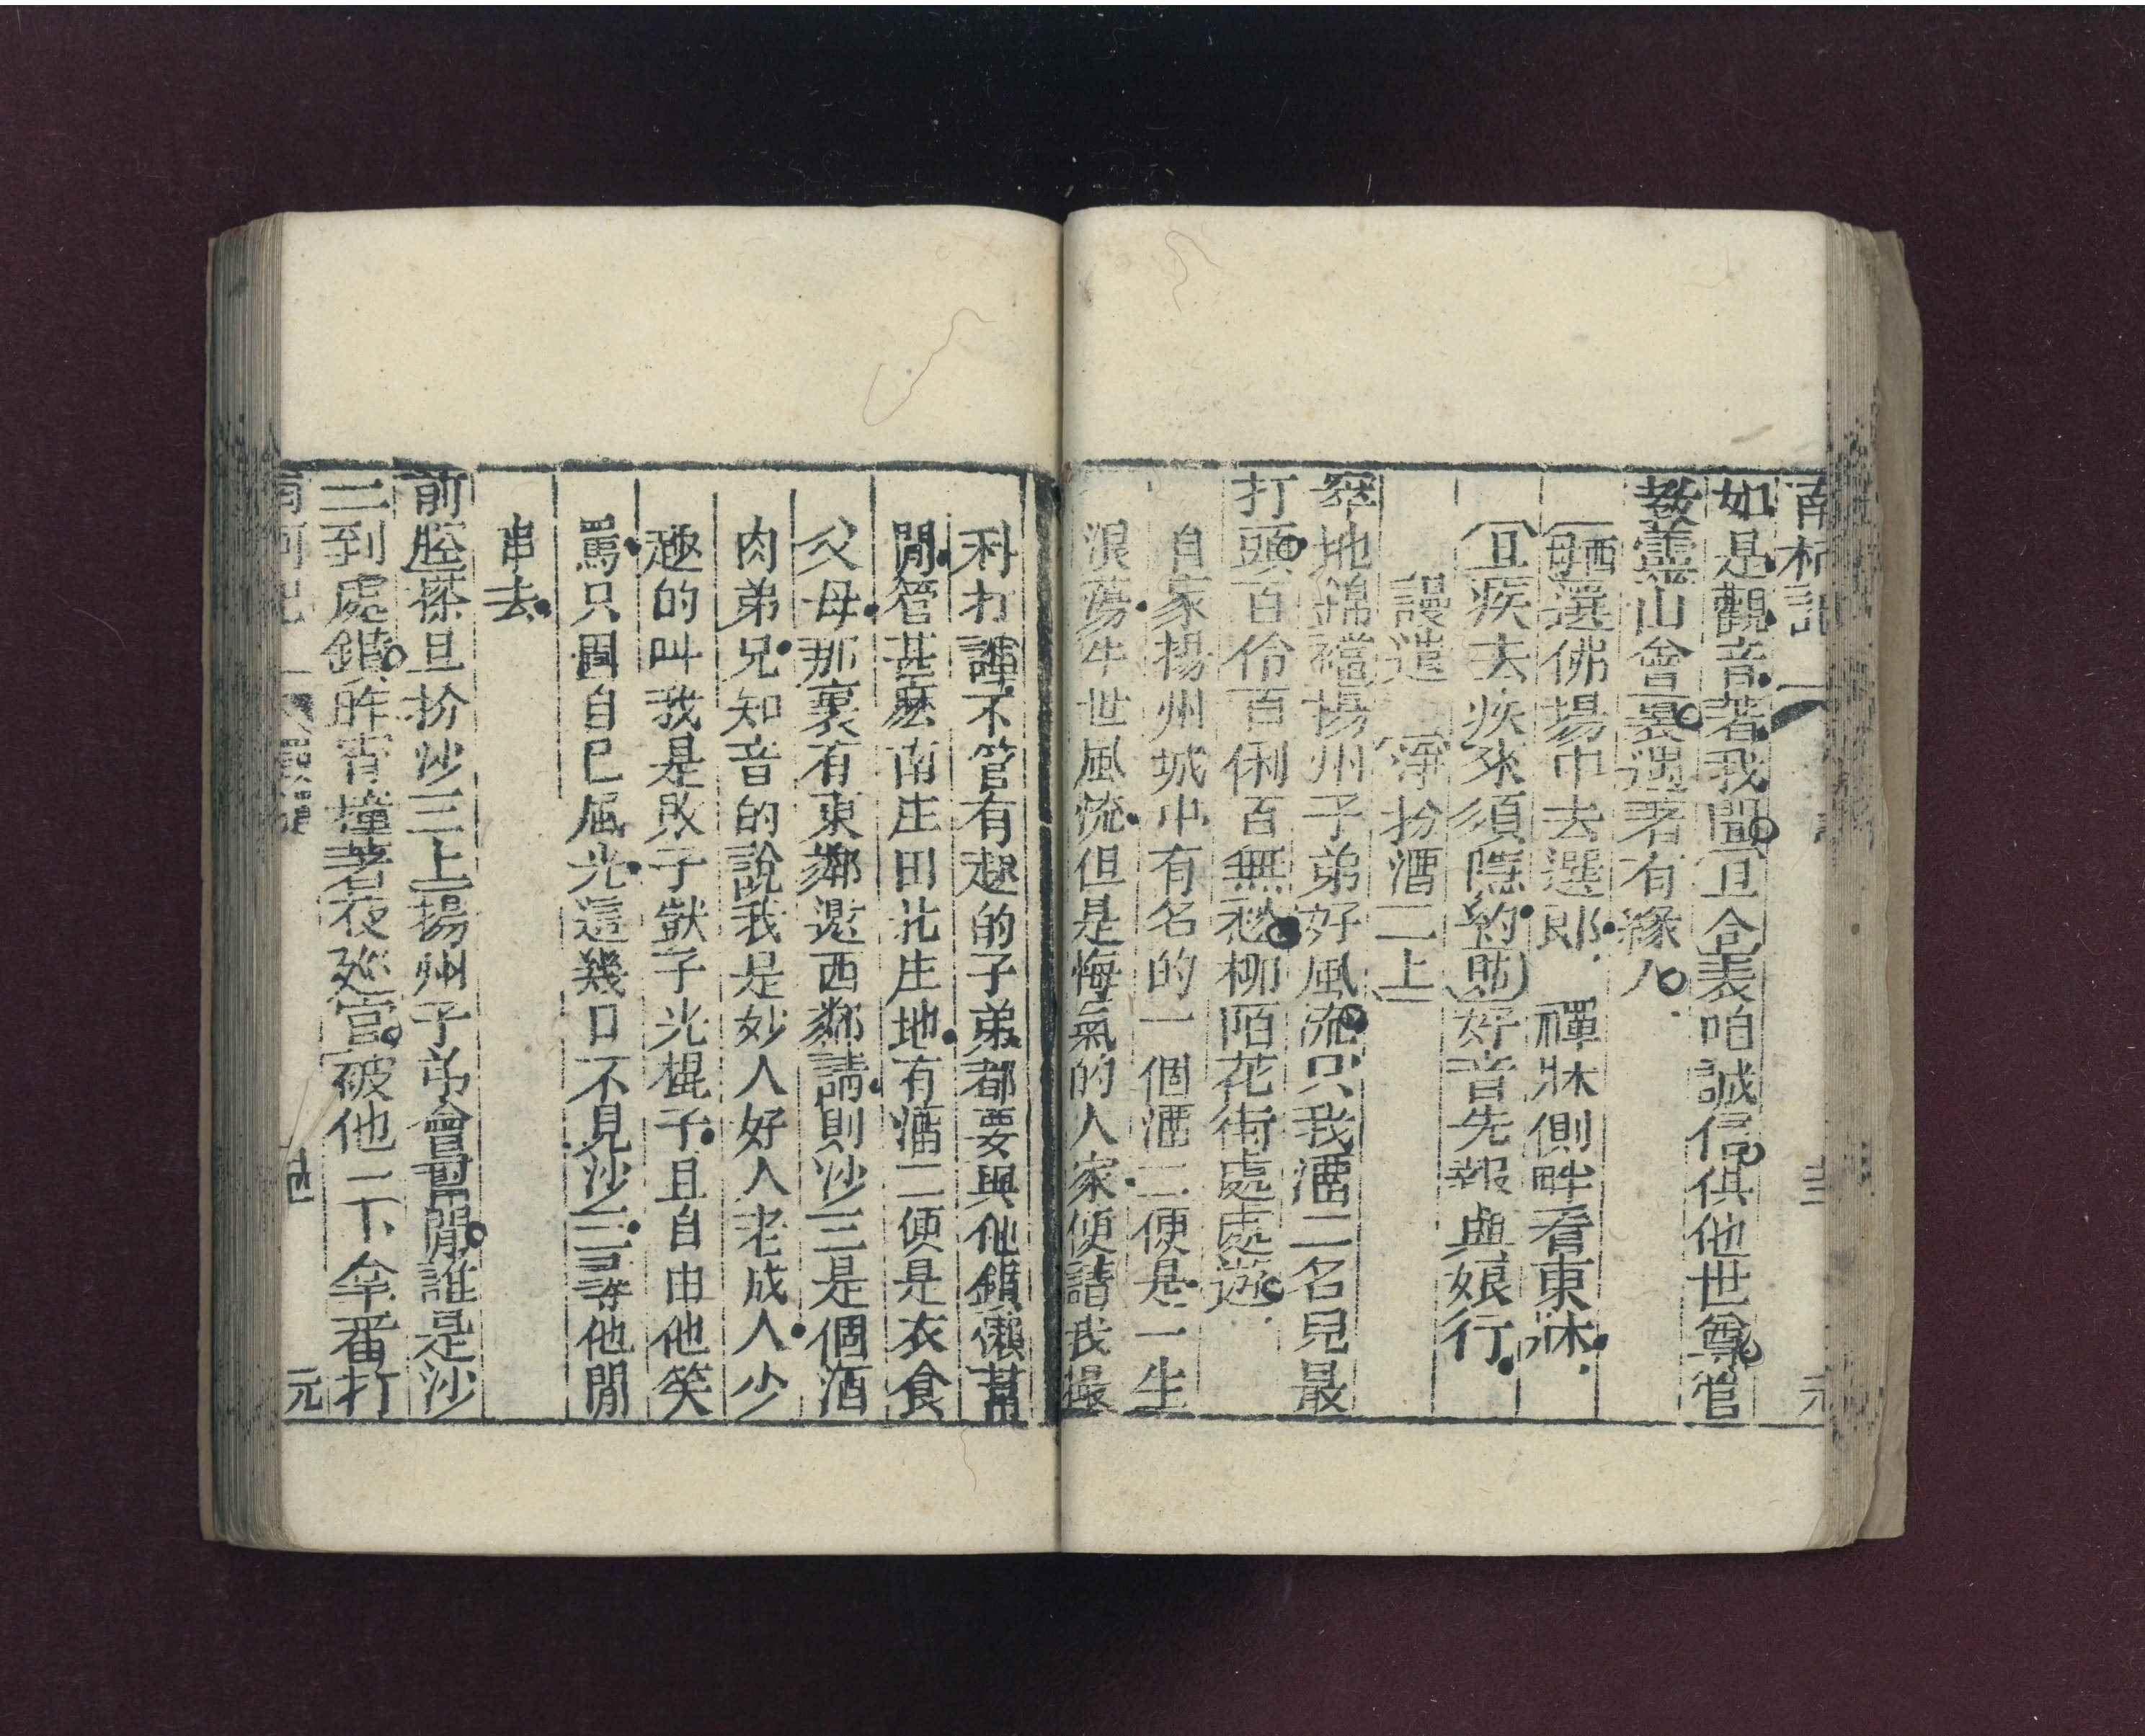 南柯記
如是觀音著我聞旦合表咱誠信俱他世尊管
教靈山會裏遇著有緣人
毋西選佛場中去選郎 禪牀側畔看東牀
旦疾去疾來須隱約 貼好音先報與娘行
謾遣 淨扮溜二上
窣地錦襠揚州子弟好風流只我溜二名兒最
打頭百伶百俐百無愁柳陌花街處處遊
自家揚州城中有名的一個溜二便是一生
浪蕩半世風流但是悔氣的人家便請我撮
科打諢不管有趣的子弟都要與他鑽懶幫
閒管甚麽南庄田北庄地有溜二便是衣食
父母那裏有東鄰邀西鄰請則沙三是個酒
肉弟兄知音的說我是妙人好人老成人少
趣的叫我是敗子獃子光棍子且自由他笑
罵只圖自己風光這幾日不見沙三尋他閒
串去
前腔搽旦扮沙三上揚州子弟會幫閒誰是沙
三到處鑽昨宵撞著夜廵官被他一下拿番打
南柯記 卷 世 元